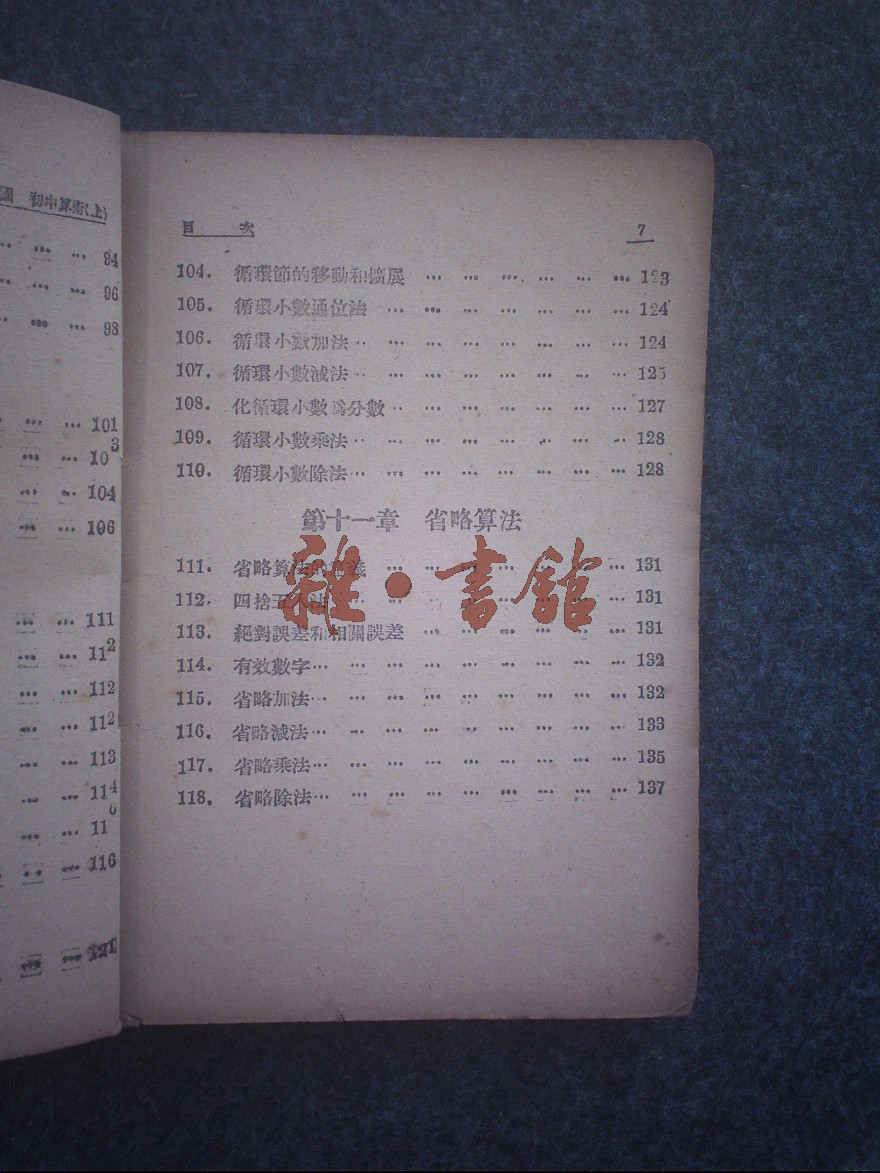 初中算術(上)
94
96
98
101
103
104
106
111
112
112
112
113
114
116
116
121
目 次 7
104. 循環節的移動和擴展 … … … … … … 123
105. 循環小數通位法 … … … … … … … 124
106. 循環小數加法 … … … … … … … … 124
107. 循環小數減法 … … … … … … … … 125
108. 化循環小數爲分數 … … … … … … … 127
109. 循環小數乘法 … … … … … … … … 128
110. 循環小數除法 … … … … … … … … 128
第十一章 省略算法
111. 省略算法的 … … … … … … … 131
112. 四捨五入法 … … … … … … … … 131
113. 絕對誤差和相關誤差 … … … … … … 131
114. 有效數字 … … … … … … … … … 132
115. 省略加法 … … … … … … … … … 132
116. 省略減法 … … … … … … … … … 133
117. 省略乘法 … … … … … … … … … 135
118. 省略除法 … … … … … … … … … 137
雜·書館